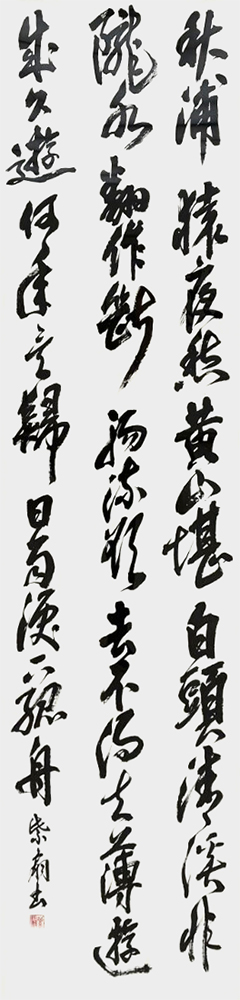 秋浦猿夜愁黄山堪白頭清溪非
隴水翻作斷腸流欲去不得去薄遊
成久遊何年是歸日雨淚下孤舟